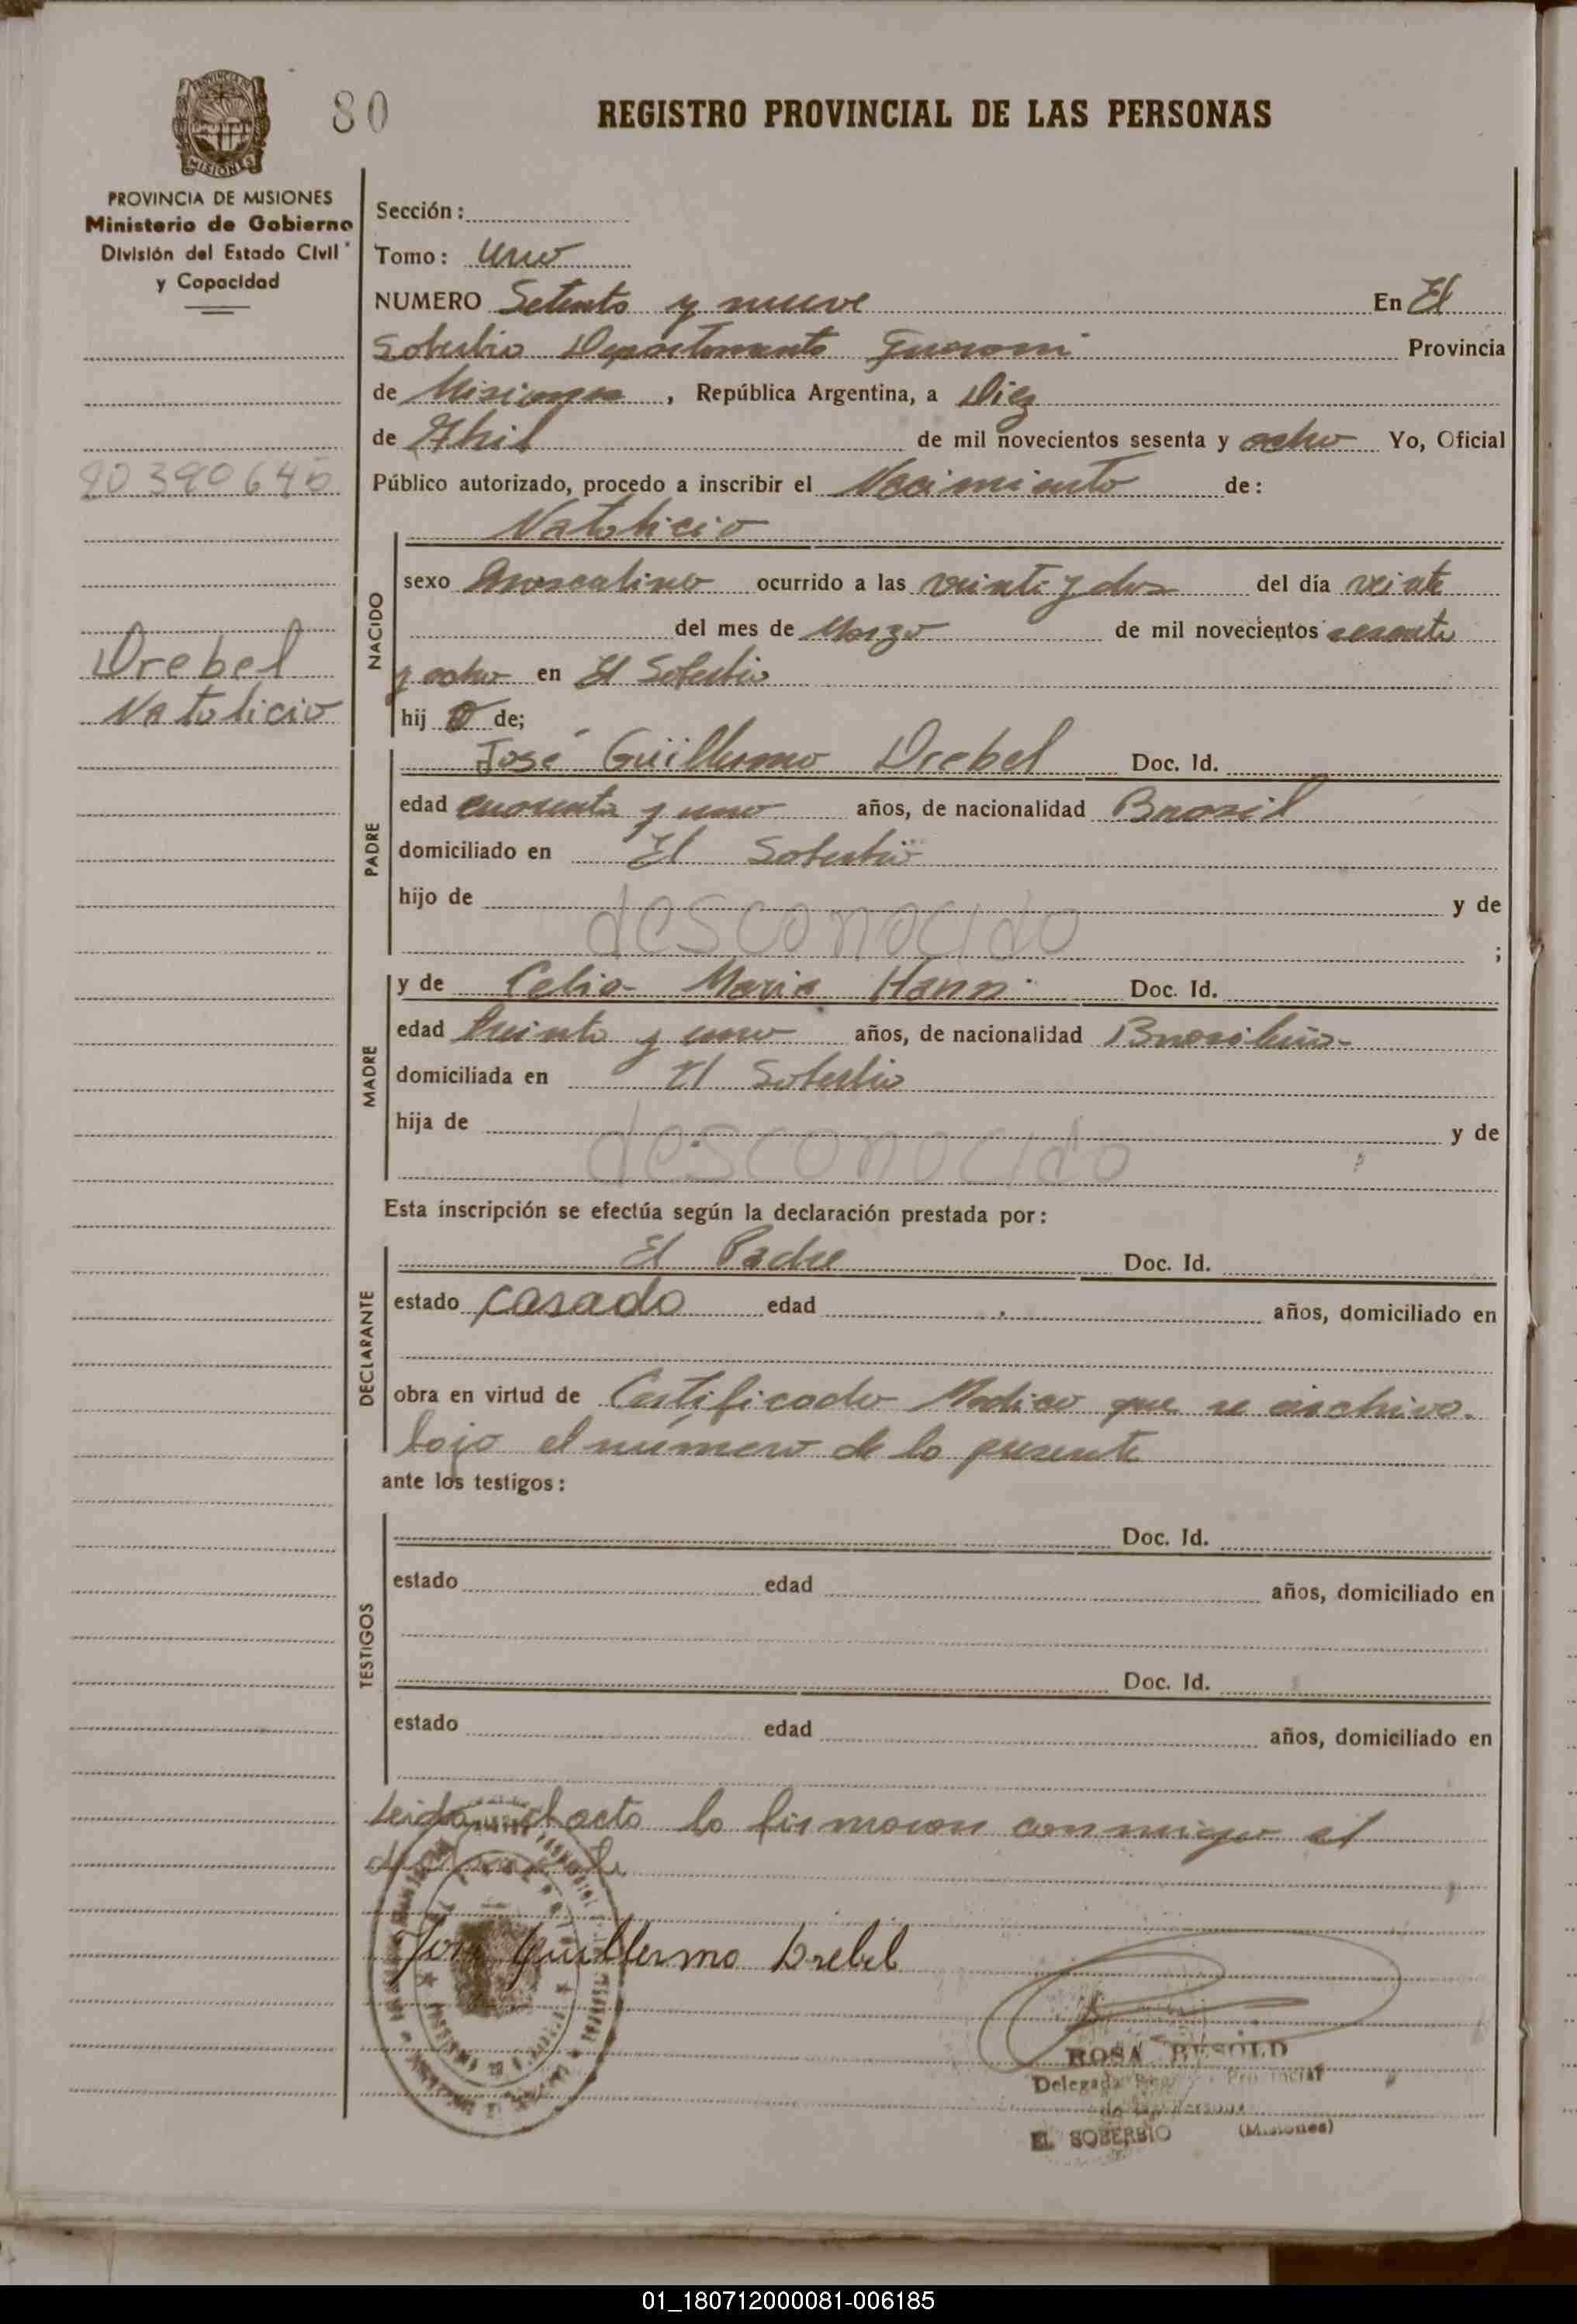 80
REGISTRO PROVINCIAL DE LAS PERSONAS
MISIONES
PROVINCIA DE MISIONES
Ministerio de Gobierno
División del Estado Civil
y Capacidad
Sección:
Tomo: Uno
NUMERO Setenta y nueve En El
Soberbio Departamento Guarani Provincia
de Misiones, República Argentina, a Diez
de Abril de mil novecientos sesenta y ocho Yo, Oficial
Público autorizado, procedo a inscribir el Nacimiento de:
Natalicio
NACIDO
sexo masculino ocurrido a las veinti y dos del día veinte
del mes de Marzo de mil novecientos sesenta
y ocho en El Soberbio
hijo de;
Drebel
Natalicio
PADRE
José Guillermo Drebel Doc. Id.
edad cuarenta y uno años, de nacionalidad Brasil
domiciliado en El Soberbio
hijo de desconocido y de
;
MADRE
y de Celia Maria Hann Doc. Id.
edad treinta y uno años, de nacionalidad Brasileña
domiciliada en El Soberbio
hija de desconocido y de
Esta inscripción se efectúa según la declaración prestada por:
DECLARANTE
El Padre Doc. Id.
estado casado edad años, domiciliado en
obra en virtud de Certificado Medico que se archiva
bajo el número de la presente
ante los testigos:
TESTIGOS
Doc. Id.
estado edad años, domiciliado en
Doc. Id.
estado edad años, domiciliado en
Leida el acta la firmaron conmigo el
José Guillermo Drebel
ROSA
Delegada
EL SOBERBIO (Misiones)
01_180712000081-006185